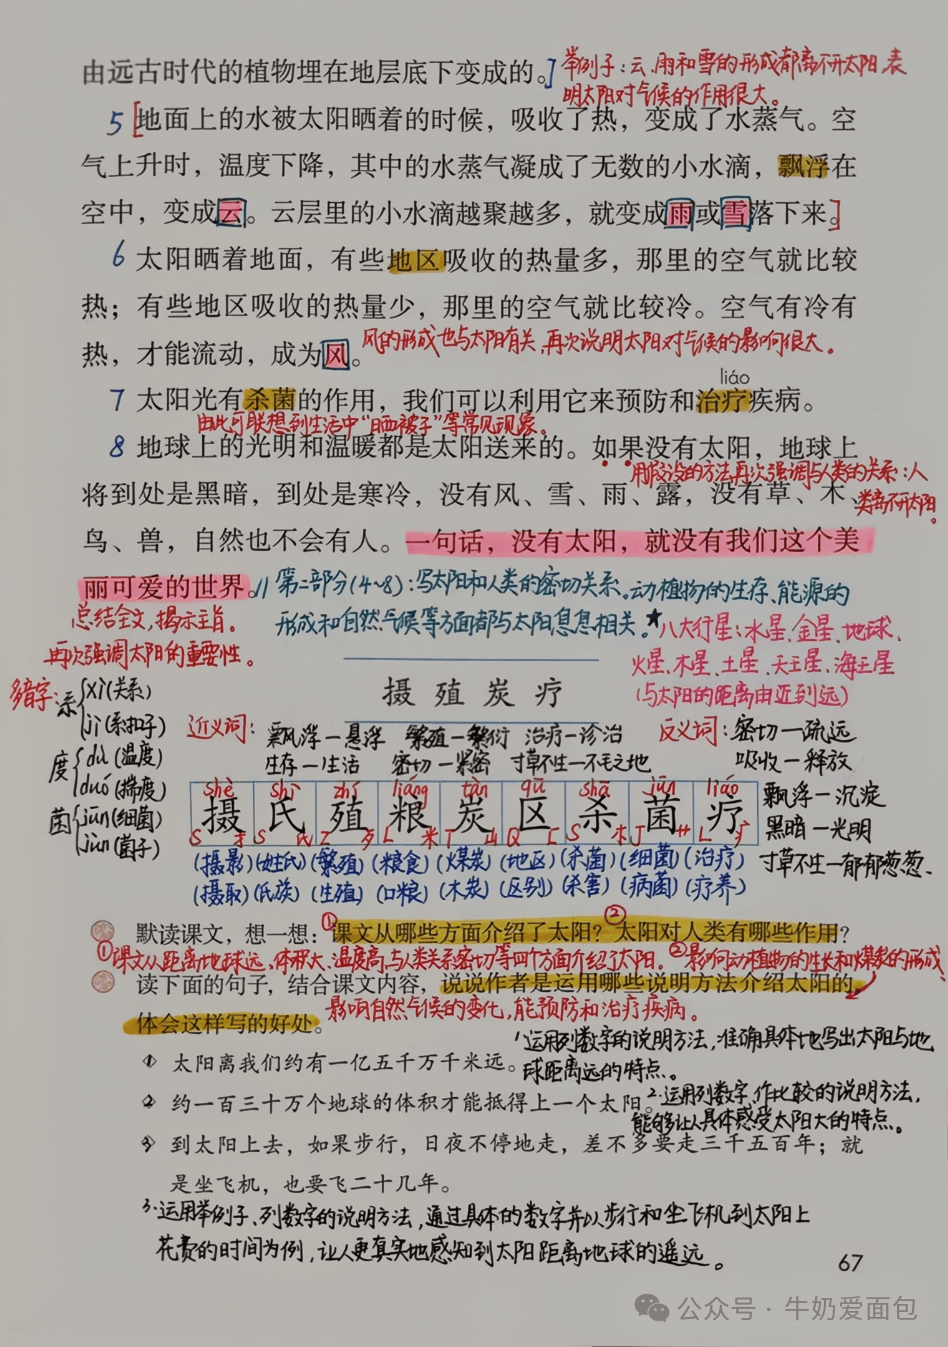 由远古时代的植物埋在地层底下变成的。]
举例子：云、雨和雪的形成都离不开太阳，表
明太阳对气候的作用很大。
5 [地面上的水被太阳晒着的时候，吸收了热，变成了水蒸气。空
气上升时，温度下降，其中的水蒸气凝成了无数的小水滴，飘浮在
空中，变成云。云层里的小水滴越聚越多，就变成雨或雪落下来。]
6 太阳晒着地面，有些地区吸收的热量多，那里的空气就比较
热；有些地区吸收的热量少，那里的空气就比较冷。空气有冷有
热，才能流动，成为风。
风的形成也与太阳有关，再次说明太阳对气候的影响很大。
liáo
7 太阳光有杀菌的作用，我们可以利用它来预防和治疗疾病。
由此可联想到生活中“晒被子”等常见现象。
8 地球上的光明和温暖都是太阳送来的。如果没有太阳，地球上
用假设的方法再次强调与人类的关系：人
类离不开太阳。
将到处是黑暗，到处是寒冷，没有风、雪、雨、露，没有草、木、
鸟、兽，自然也不会有人。一句话，没有太阳，就没有我们这个美
丽可爱的世界。//
第二部分(4~8)：写太阳和人类的密切关系。动植物的生存、能源的
形成和自然气候等方面都与太阳息息相关。
总结全文，揭示主旨。
再次强调太阳的重要性。
★八大行星：水星、金星、地球、
火星、木星、土星、天王星、海王星
(与太阳的距离由近到远)
摄 殖 炭 疗
多音字：
系{xì(关系)
jì(系扣子)
度{dù(温度)
duó(揣度)
菌{jūn(细菌)
jùn(菌子)
近义词：飘浮—悬浮 繁殖—繁衍 治疗—诊治
生存—生活 密切—紧密 寸草不生—不毛之地
反义词：密切—疏远
吸收—释放
飘浮—沉淀
黑暗—光明
寸草不生—郁郁葱葱、
shè shì zhí liáng tàn qū shā jūn liáo
摄 氏 殖 粮 炭 区 杀 菌 疗
S 扌 S 氏 Z 歹 L 米 T 山 Q 匚 S 木 J 艹 L 疒
(摄影)(姓氏)(繁殖)(粮食)(煤炭)(地区)(杀菌)(细菌)(治疗)
(摄取)(氏族)(生殖)(口粮)(木炭)(区别)(杀害)(病菌)(疗养)
默读课文，想一想：①课文从哪些方面介绍了太阳？②太阳对人类有哪些作用？
①课文从距离地球远、体积大、温度高、与人类关系密切等四个方面介绍了太阳。②影响动植物的生长和煤炭的形成、
读下面的句子，结合课文内容，说说作者是运用哪些说明方法介绍太阳的，
影响自然气候的变化，能预防和治疗疾病。
体会这样写的好处。
① 太阳离我们约有一亿五千万千米远。
1.运用列数字的说明方法，准确具体地写出太阳与地
球距离远的特点。
② 约一百三十万个地球的体积才能抵得上一个太阳。
2.运用列数字、作比较的说明方法，
能够让人具体感受太阳大的特点。
③ 到太阳上去，如果步行，日夜不停地走，差不多要走三千五百年；就
是坐飞机，也要飞二十几年。
3.运用举例子、列数字的说明方法，通过具体的数字并以步行和坐飞机到太阳上
花费的时间为例，让人更真实地感知到太阳距离地球的遥远。
67
公众号·牛奶爱面包